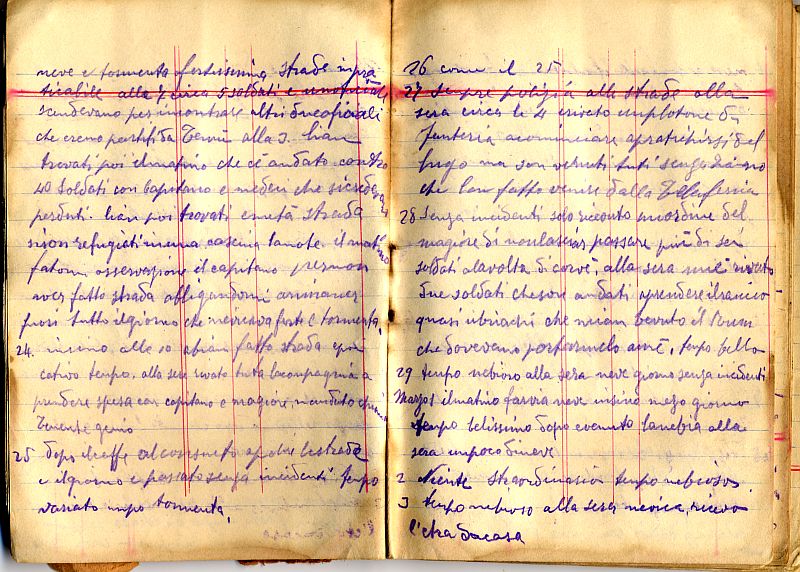 neve e tormenta fortissima, strade inpra
ticabile alla 7 circa 5 soldati e
scendevano per incontrare altri due
che erano partiti da alla 3. lian
trovati poi il matino che cé andato contro
40 soldati con Capitano e
perduti. lian poi trovati a metá strada
in una cascina la note. il mat
fatomi osservazione il capitano per non
aver fatto strada obligandomi a rimaner
fuori tutto il giorno che nevicava forte e tormenta,
24. insino alle 10 abiam fatto strada epoi
cativo tempo. alla sera rivato tuta la compagnia a
prendere spesa con capitano e magiore, mandato
Tenente genio
25 dopo il caffe al consueto a far le strade
e il giorno e passato senza incidenti tempo
variato un po tormenta,
26 come il 25
27 sempre pulizia alle strade alla
sera circa le 4 rivato un plotone di
fanteria a cominciare a pratichirsi del
luogo ma son venuti tuti senza
che lan fatto venire dalla
28 Senza incidenti solo ricevuto un ordine del
magiore di non lasciar passare piú di sei
soldati a la volta di corvé, alla sera mi é rivato
due soldati che son andati a prendere il rancio
quasi ubriachi che mi an bevuto il Rum
che dovevano portarmelo a mé, tempo bello
29 tempo nebioso alla sera neve giorno senza incidenti
Marzo 1 il matino faceva neve insino mezo giorno
tempo belissimo dopo e venuto la nebia alla
sera un poco di neve
2 Niente straordinario tempo nebioso
3 tempo nebioso alla sera nevica, ricevo
letera da casa